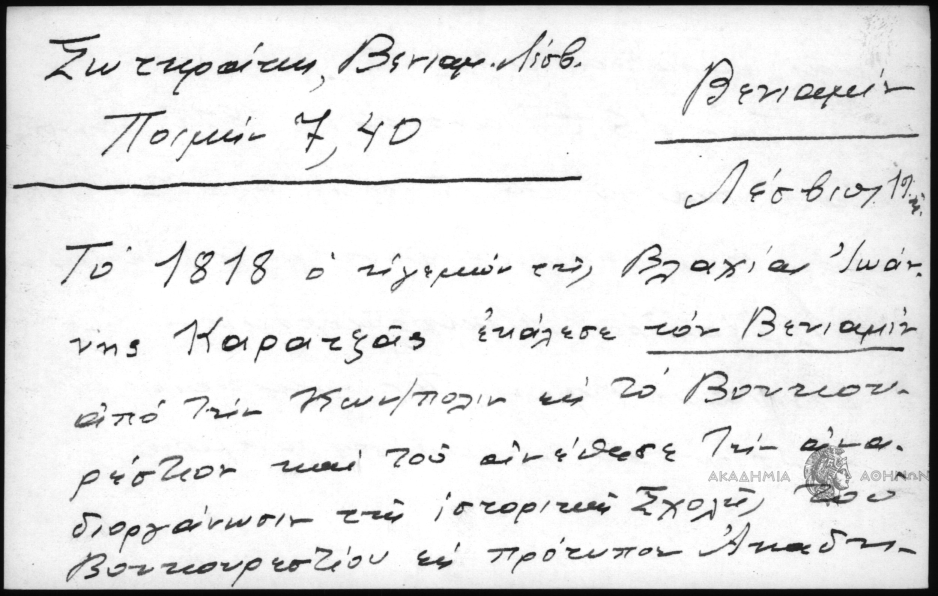 Σωτηράκης, Βενιαμ. Λέσβ.
Ποιμήν 7, 40
Βενιαμίν
Λέσβιος
Τό 1818 ὁ ἡγεμών τῆς Βλαχίας Ἰωάν-
νης Καρατζᾶς ἐκάλεσε τόν Βενιαμίν
ἀπό τήν Κων/πολιν εἰς τό Βουκου-
ρέστιον καί τοῦ ἀνέθεσε τήν ἀνα-
διοργάνωσιν τῆς ἱστορικῆς Σχολῆς τοῦ
Βουκουρεστίου εἰς πρότυπον Ἀκαδη-
ΑΚΑΔΗΜΙΑ ΑΘΗΝΩΝ